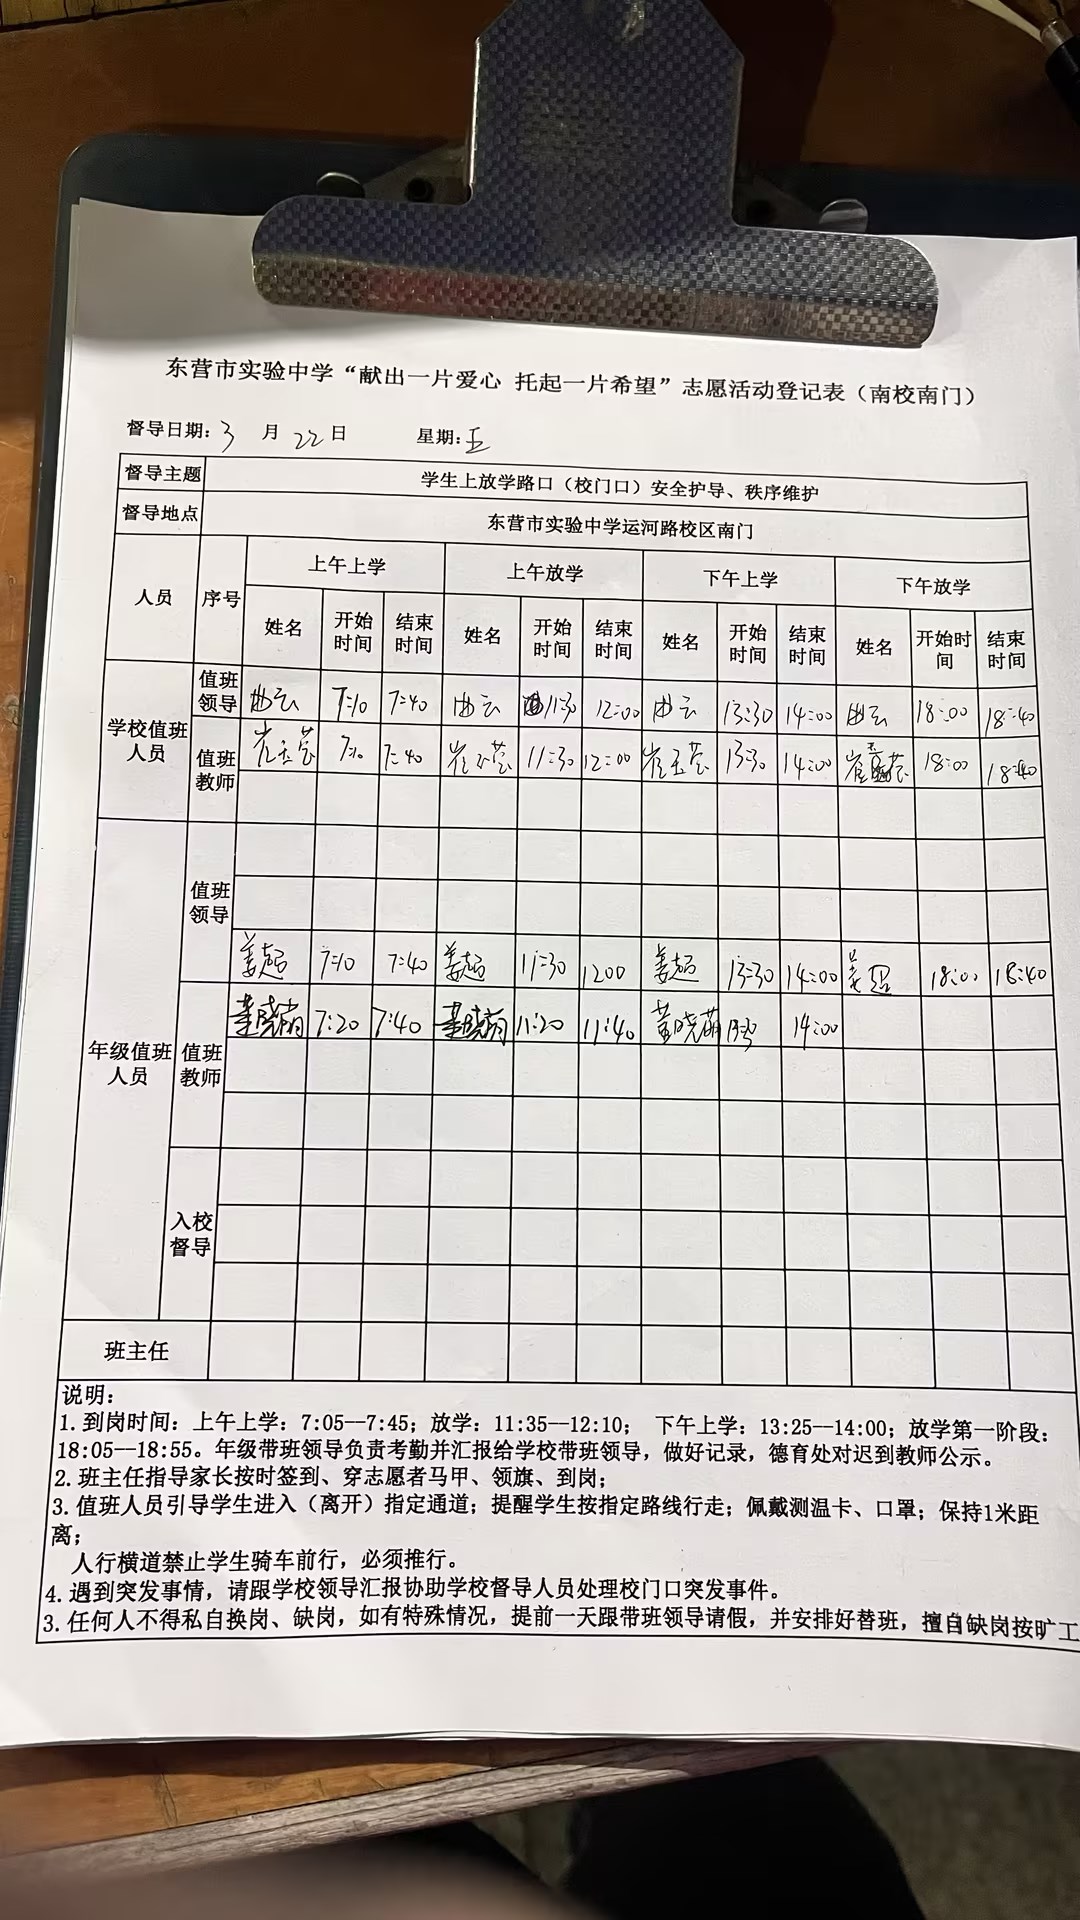 东营市实验中学“献出一片爱心 托起一片希望”志愿活动登记表（南校南门）
督导日期：3 月 22 日 星期：五
督导主题 学生上放学路口（校门口）安全护导、秩序维护
督导地点 东营市实验中学运河路校区南门
人员 序号 上午上学 上午放学 下午上学 下午放学
姓名 开始时间 结束时间 姓名 开始时间 结束时间 姓名 开始时间 结束时间 姓名 开始时间 结束时间
学校值班人员 值班领导 曲云 7:10 7:40 曲云 11:30 12:00 曲云 13:30 14:00 曲云 18:00 18:40
值班教师 崔玉莹 7:10 7:40 崔玉莹 11:30 12:00 崔玉莹 13:30 14:00 崔 18:00 18:40
年级值班人员 值班领导
姜超 7:10 7:40 姜超 11:30 1200 姜超 13:30 14:00 姜超 18:00 18:40
值班教师 晓萌 7:20 7:40 晓萌 11:20 11:40 黄晓萌 14:00
入校督导
班主任
说明：
1. 到岗时间：上午上学：7:05--7:45；放学：11:35--12:10； 下午上学：13:25--14:00；放学第一阶段：
18:05--18:55。年级带班领导负责考勤并汇报给学校带班领导，做好记录，德育处对迟到教师公示。
2. 班主任指导家长按时签到、穿志愿者马甲、领旗、到岗；
3. 值班人员引导学生进入（离开）指定通道；提醒学生按指定路线行走；佩戴测温卡、口罩；保持1米距
离；
人行横道禁止学生骑车前行，必须推行。
4. 遇到突发事情，请跟学校领导汇报协助学校督导人员处理校门口突发事件。
3. 任何人不得私自换岗、缺岗，如有特殊情况，提前一天跟带班领导请假，并安排好替班，擅自缺岗按旷工